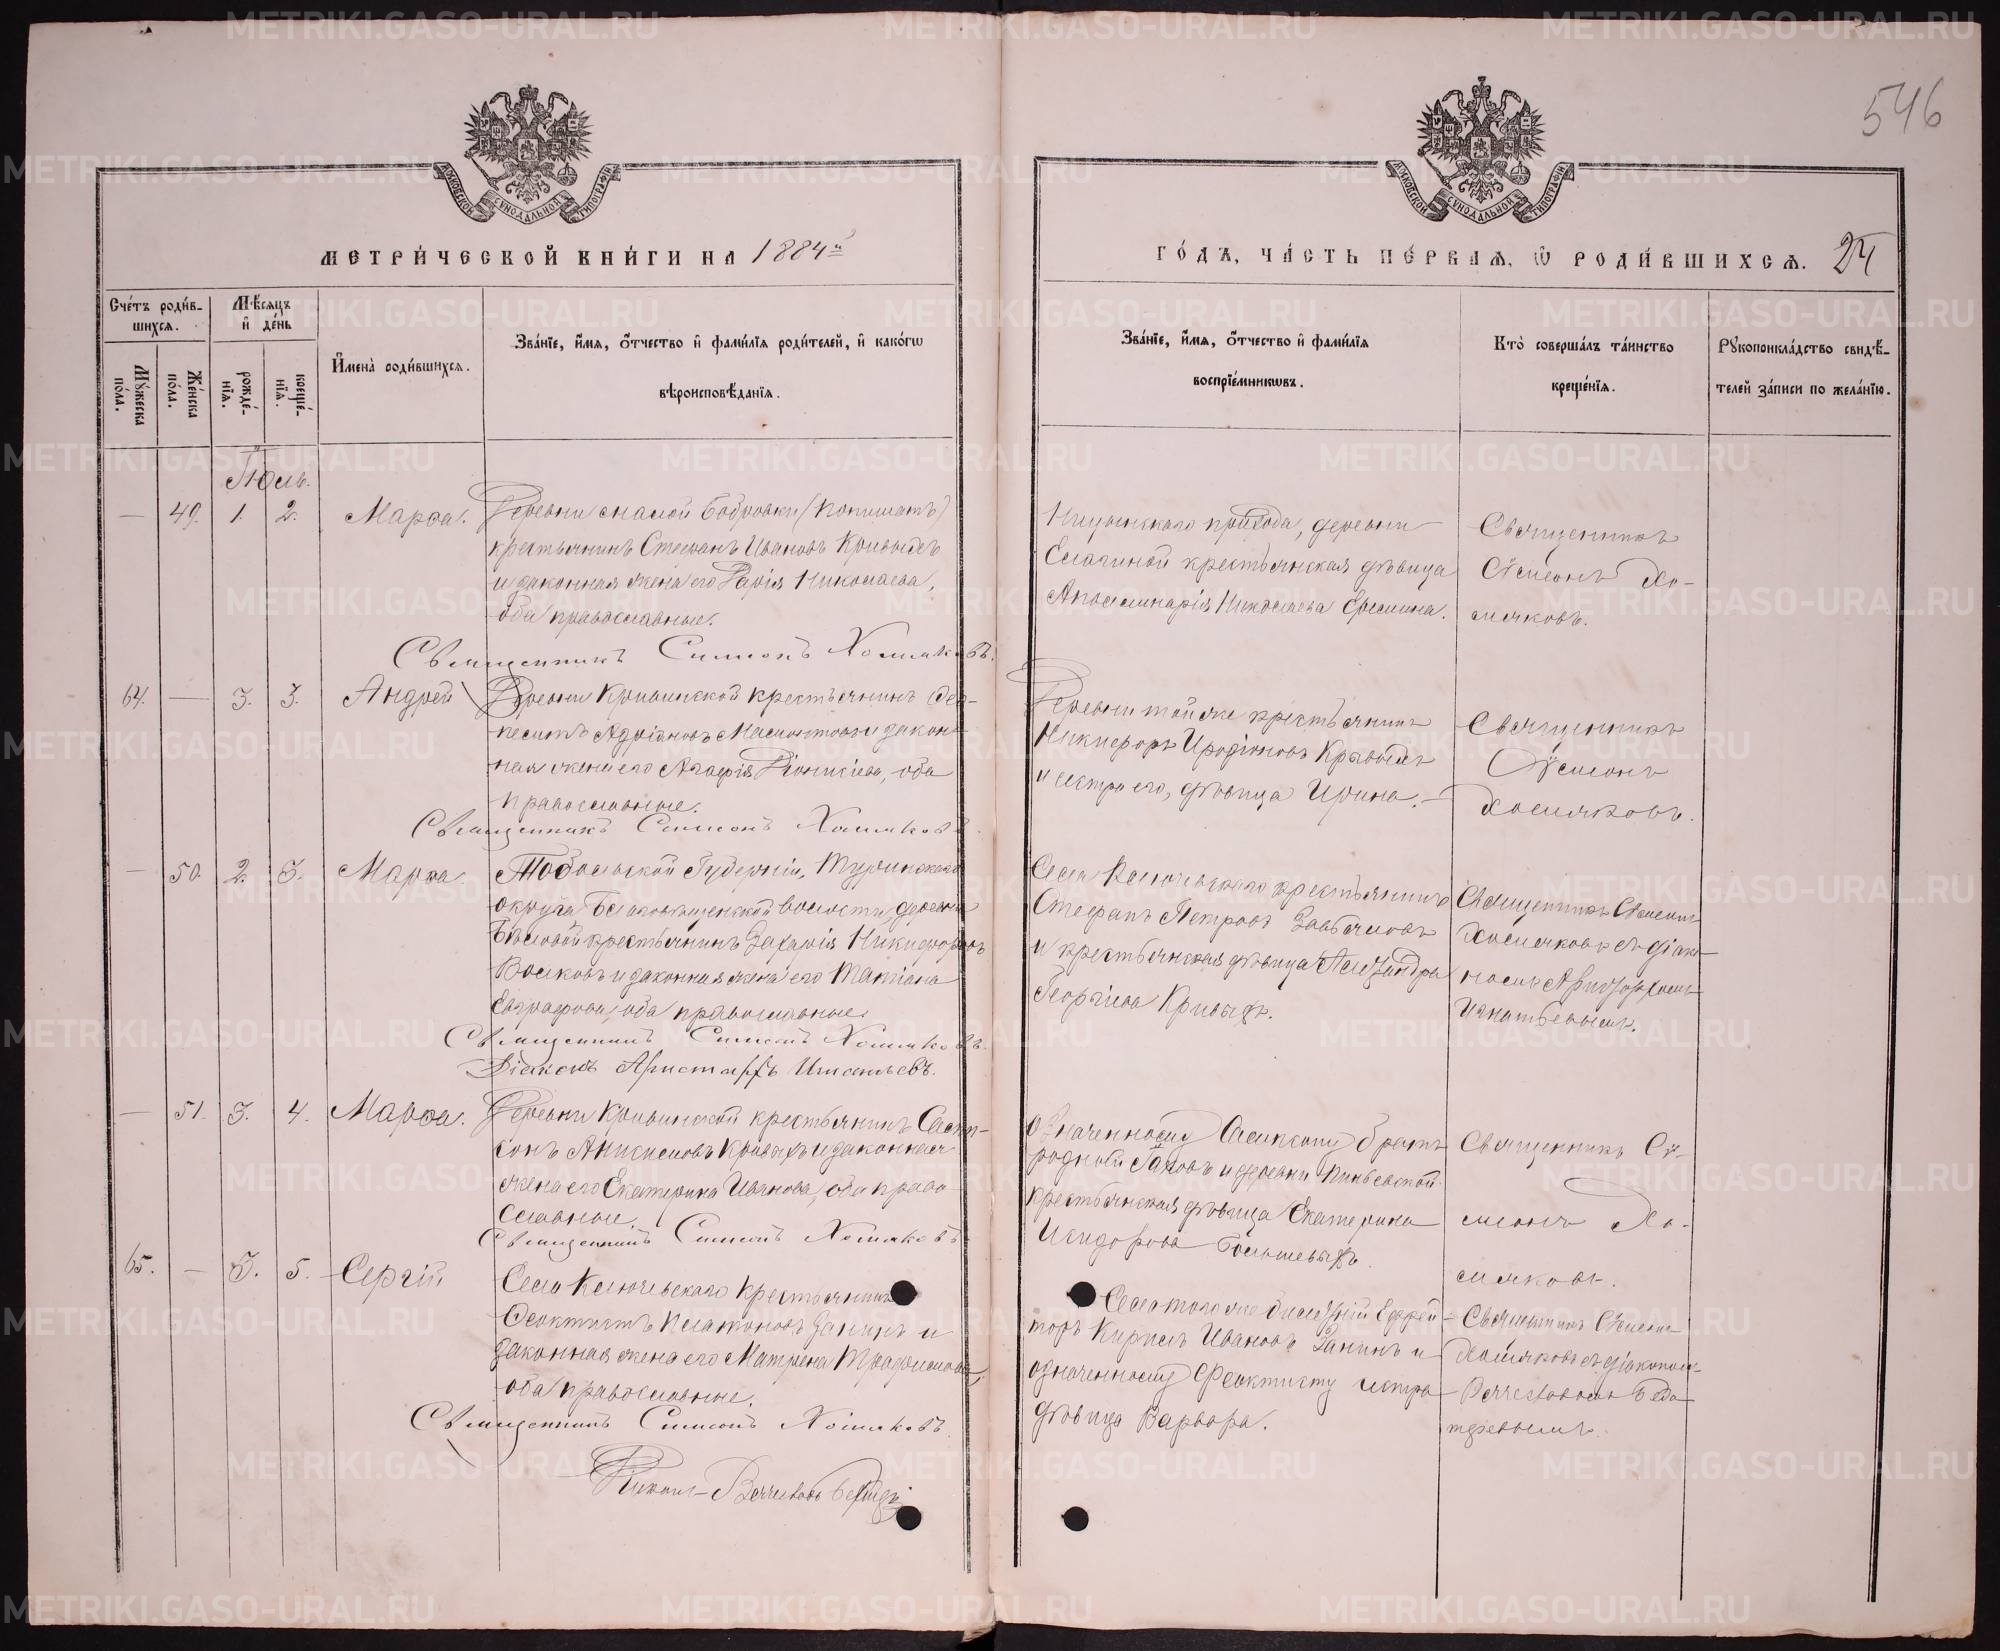 546
МОСКОВСКОЙ СѴНОДАЛЬНОЙ ТИПОГРАФІИ
МОСКОВСКОЙ СѴНОДАЛЬНОЙ ТИПОГРАФІИ
МЕТРИ́ЧЕСКОЙ КНИ́ГИ НА 1884й
ГО́ДЪ, ЧА́СТЬ ПЕ́РВАЯ, Ѡ РОДИ́ВШИХСЯ. 24
Сче́тъ роди́в-
шихся.
Мꙋ́жеска
по́ла.
Же́нска
по́ла.
Мѣ́сяцъ
и де́нь
рожде́-
нїя.
креще́-
нїя.
И́мена̀ роди́вшихся.
Зва́нїе, и́мя, о́тчество и фами́лїя роди́телей, и како́гѡ
вѣроисповѣ́данїя.
Зва́нїе, и́мя, о́тчество и фами́лїя
воспрїе́мникѡвъ.
Кто̀ соверша́лъ та́инство
креще́нїя.
Рꙋкоприкла́дство свидѣ́-
телей за́писи по жела́нїю.
Іюль.
— 49. 1. 2. Марѳа.
Деревни малой Бобровки
крестьянинъ Стефанъ Ивановъ Кривыхъ
и законная жена его Дарія Николаева,
оба православные.
Священникъ Симеонъ Хомяковъ.
Ницынскаго прихода, деревни
Елагиной крестьянская дѣвица
Аполлинарія Николаева Еремина.
Священникъ
Сѵмеонъ Хо-
мяковъ.
64. — 3. 3. Андрей
Деревни Кривинской крестьянинъ
Адріановъ и закон-
ная жена его Агафія Діонисіева, оба
православные.
Священникъ Симеонъ Хомяковъ.
Деревни тойже крестьянинъ
Никифоръ Иродіоновъ Кривыхъ
и сестра его, дѣвица Ирина.—
Священникъ
Сѵмеонъ
Хомяковъ.
— 50. 2. 3. Марѳа.
Тобольской Губерніи, Туринскаго
округа Благовѣщенской волости, деревни
крестьянинъ Захарія Никифоровъ
Волковъ и законная жена его Татіана
Евграфова, оба православные.
Священникъ Симеонъ Хомяковъ.
Діаконъ Аристархъ Игнатьевъ.
Села Ключевскаго крестьянинъ
Стефанъ Петровъ Завьяловъ
и крестьянская дѣвица Александра
Георгіева Кривыхъ.
Священникъ Сѵмеонъ
Хомяковъ съ діако-
номъ Аристархомъ
Игнатьевымъ.
— 51. 3. 4. Марѳа.
Деревни Кривинской крестьянинъ Самп-
сонъ Анисимовъ Кривыхъ и законная
жена его Екатерина Иванова, оба право-
славные.
Священникъ Симеонъ Хомяковъ
означенному Сампсону братъ
родной Іаковъ и деревни
крестьянская дѣвица Екатерина
Исидорова Большевыхъ.
Священникъ Сѵ-
меонъ Хо-
мяковъ.
65. — 3. 5. Сергій
Села Ключевскаго крестьянинъ
Ѳеоктистъ Платоновъ Занинъ и
законная жена его Матрена Трофимова,
оба православные.
Священникъ Симеонъ Хомяковъ.
Села того же Ефрей-
торъ Кириллъ Ивановъ Занинъ и
означенному Ѳеоктисту сестра
дѣвица Варвара.
Священникъ Сѵмеонъ
Хомяковъ съ діакономъ